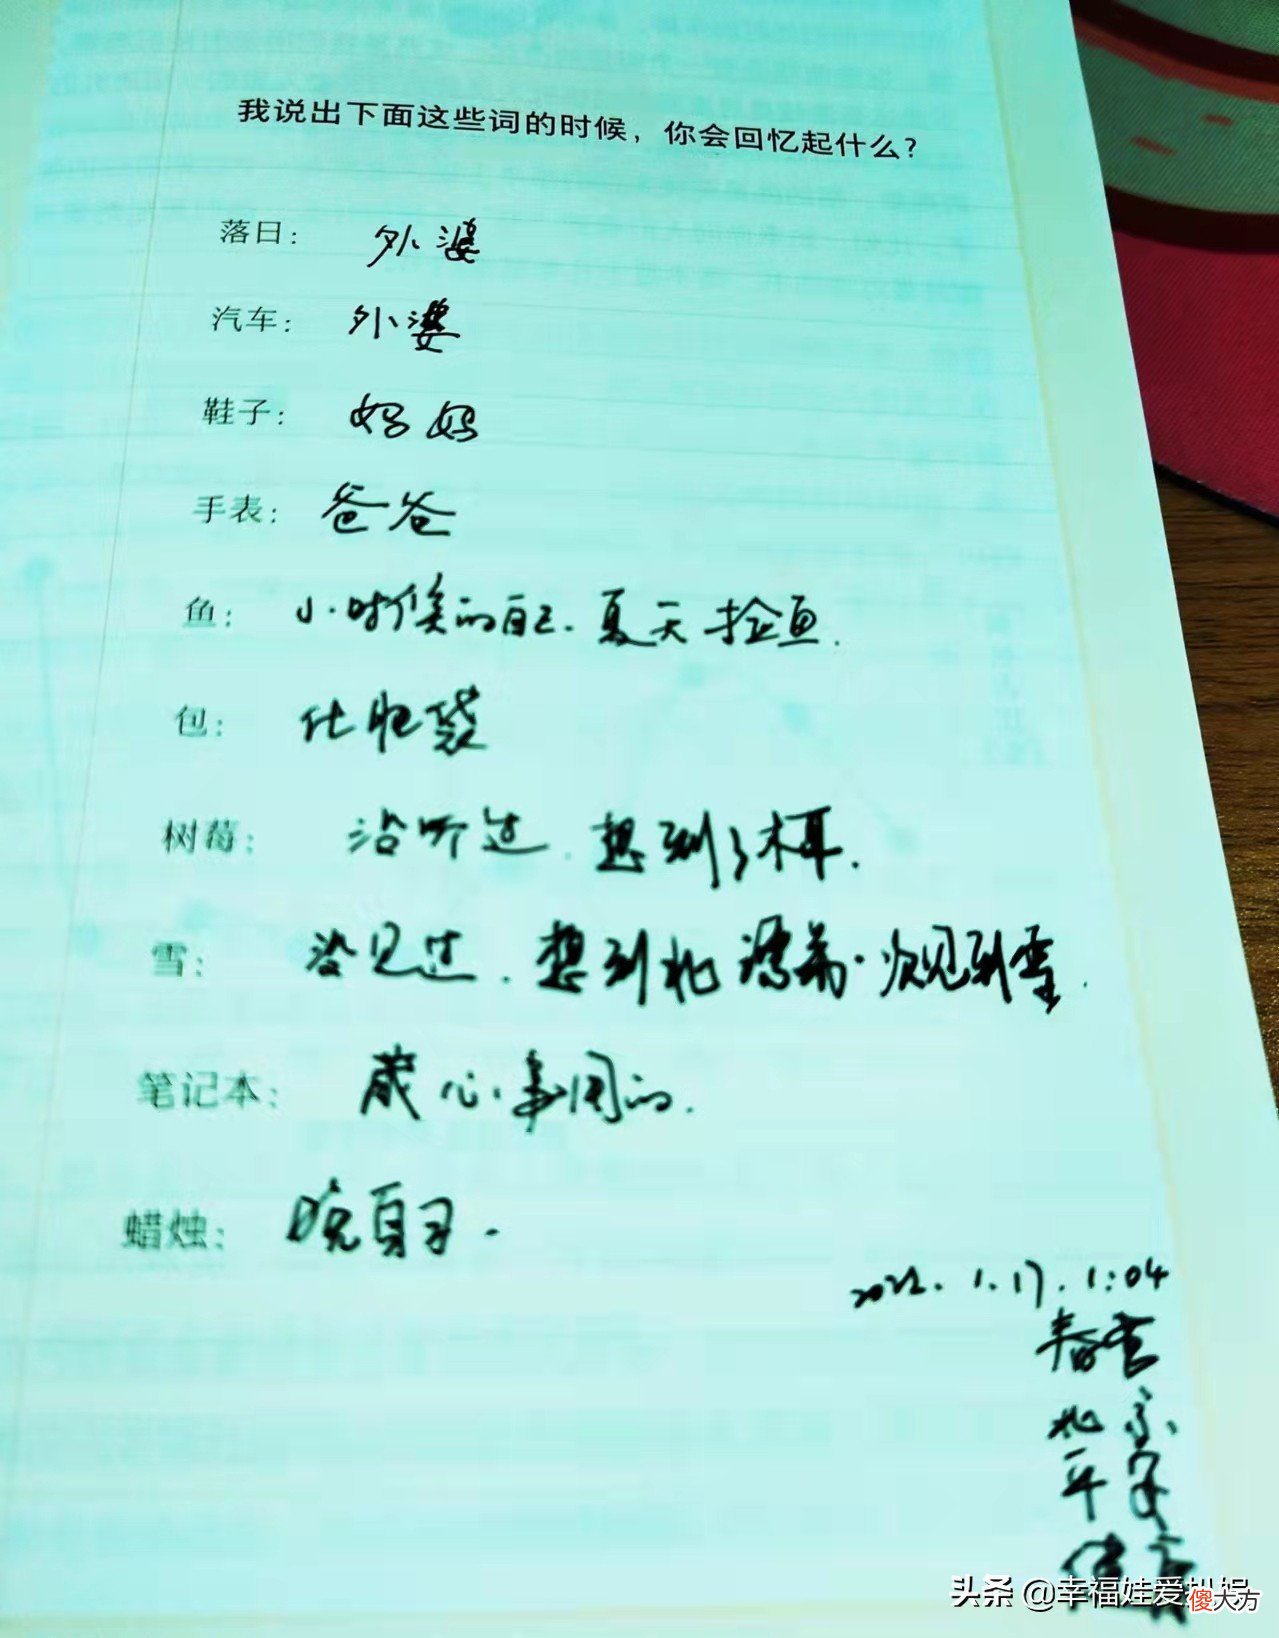 我说出下面这些词的时候，你会回忆起什么？
落日： 外婆
汽车： 外婆
鞋子： 妈妈
手表： 爸爸
鱼： 小时候的自己. 夏天捡鱼.
包： 化肥袋
树莓： 没听过. 想到了木耳.
雪： 没见过. 想到北 第一次见到雪.
笔记本： 藏心事用的.
蜡烛： 晚自习.
2022. 1. 17. 1:04
春雪
北京
平安
健康
头条 @幸福娃爱
傻大方